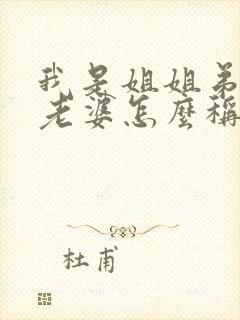 我是姐姐弟
老婆怎麼稱
杜甫